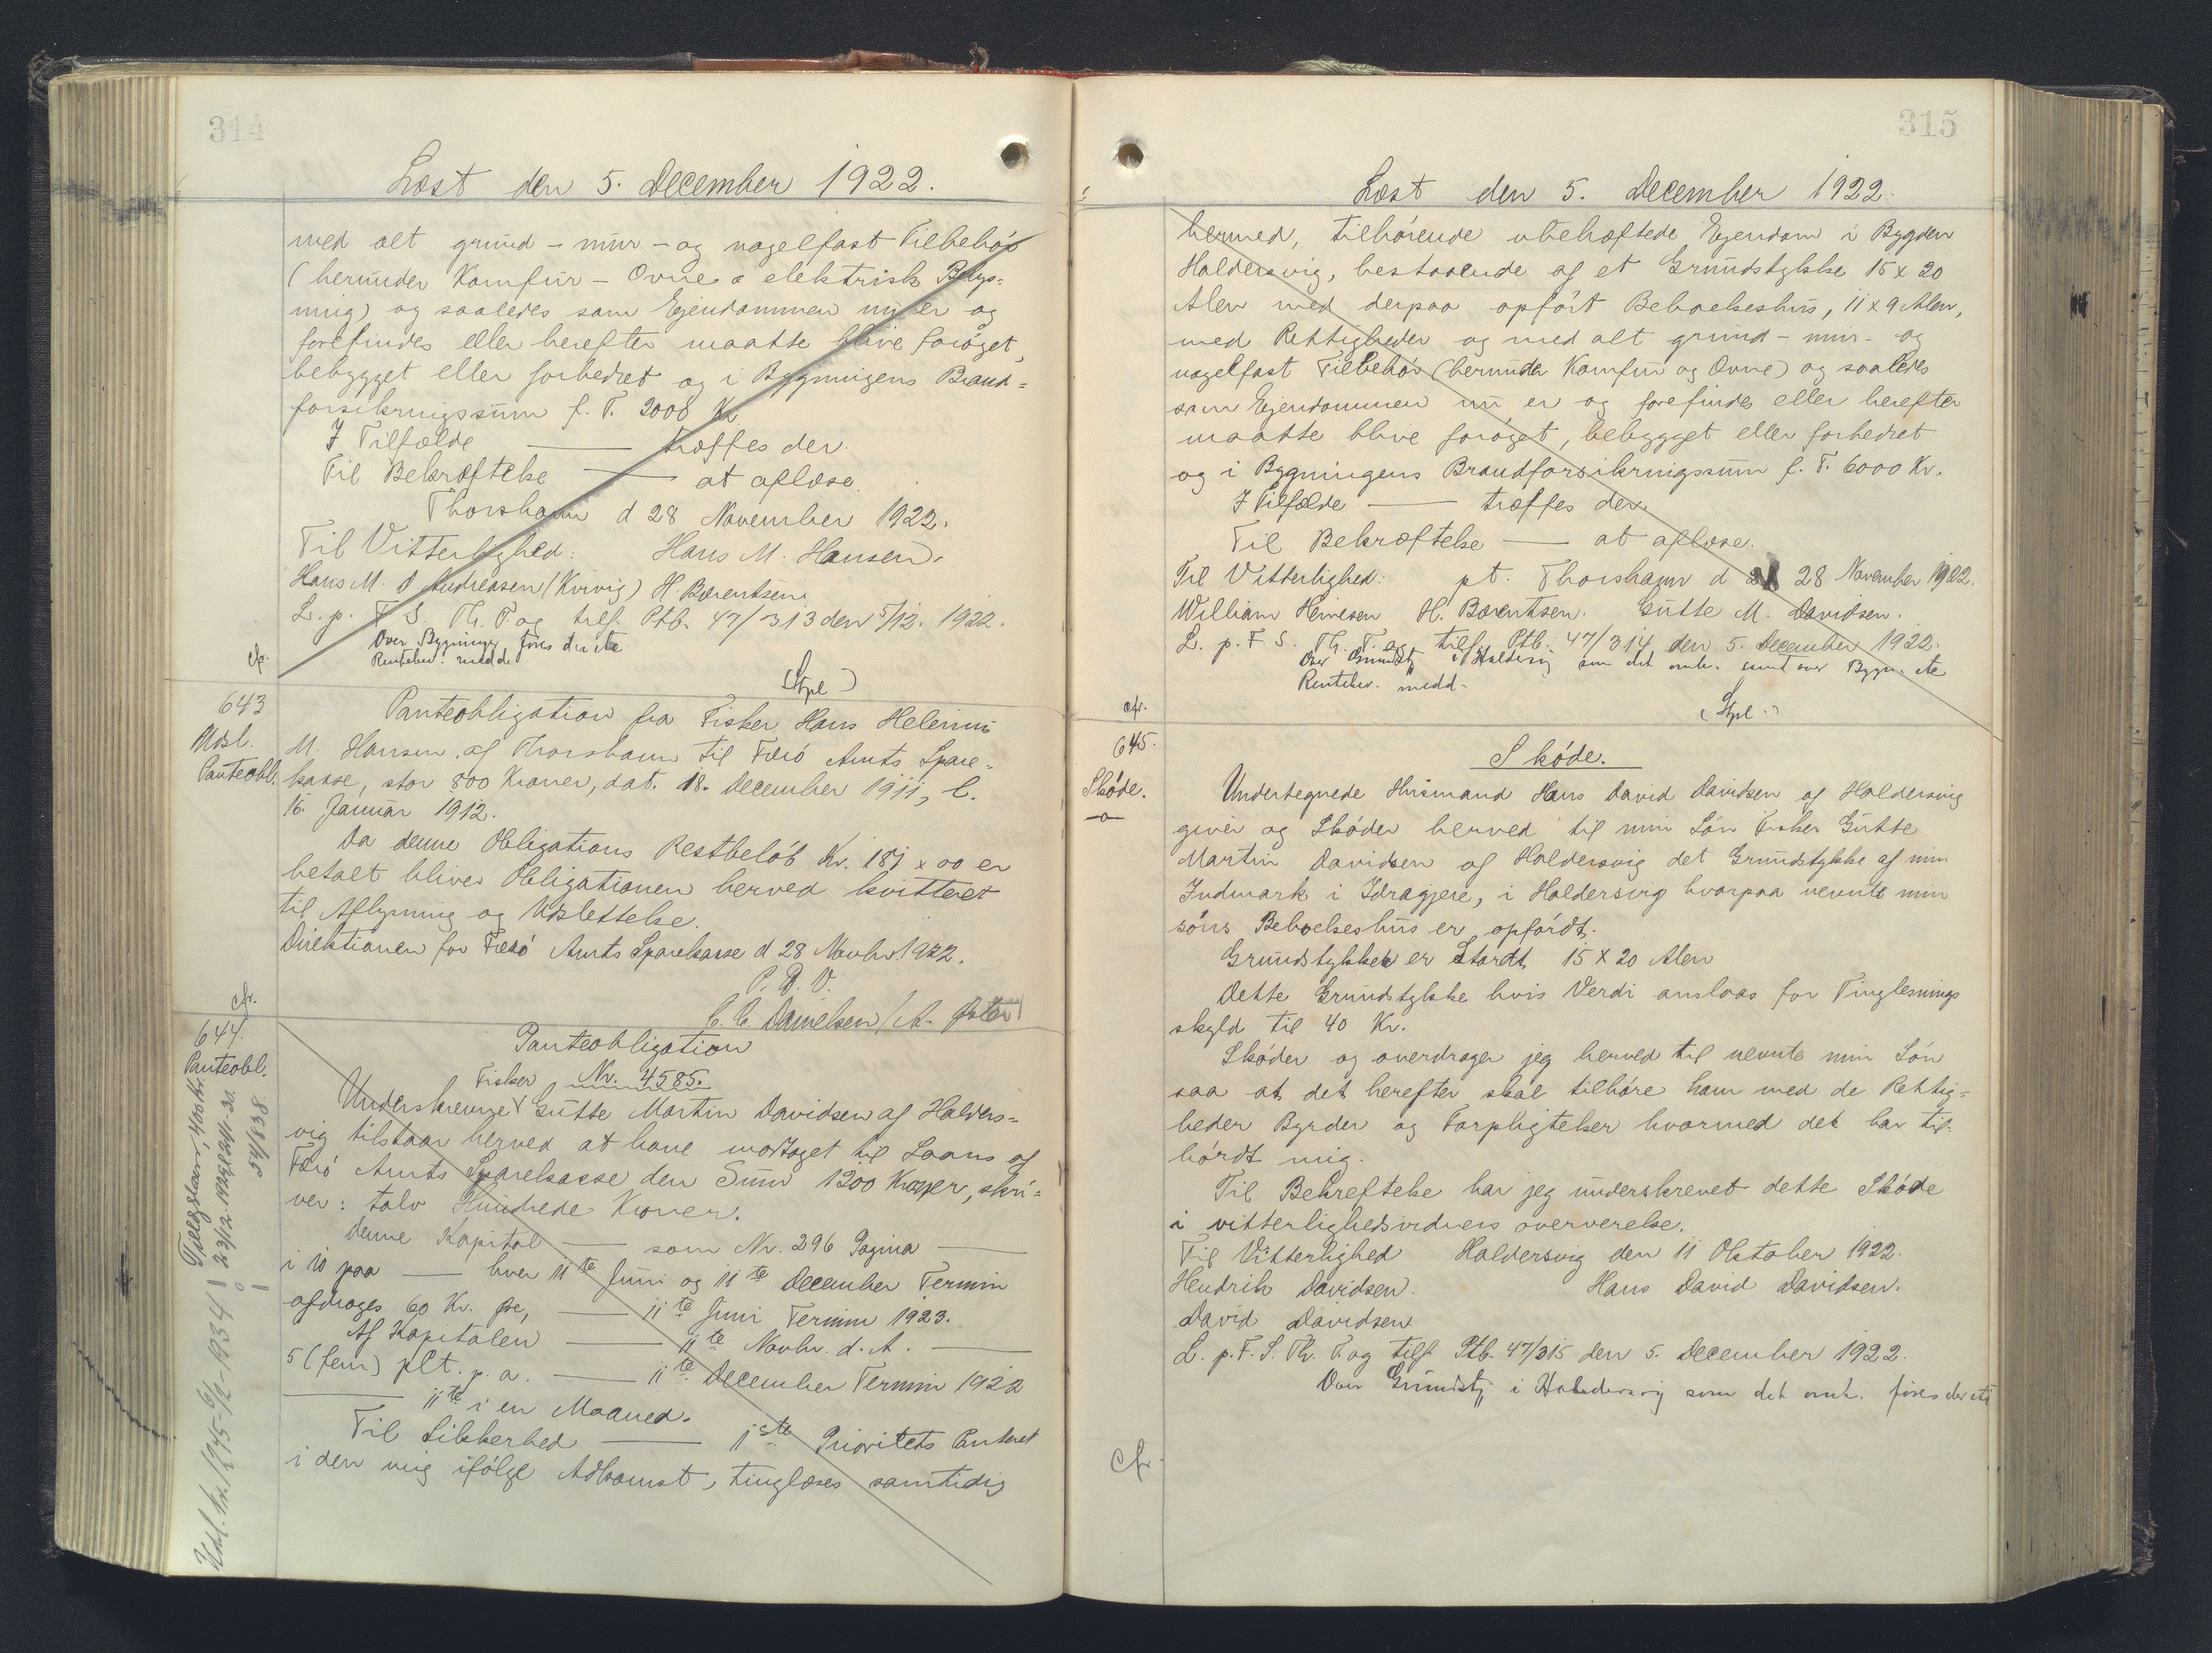 314
Læst den 5. December 1922.
med alt grund- mur- og nagelfast Tilbehør
(herunder Komfur- Ovne & elektrisk Belys-
ning) og saaledes som Ejendommen nu er og
forefindes eller herefter maatte blive forøget,
bebygget eller forbedret og i Bygningens Brand-
forsikringssum f. T. 2000 Kr.
I Tilfælde — træffes der.
Til Bekræftelse — at aflæse.
Thorshavn d 28 November 1922.
Til Vitterlighed: Hans M. Hansen.
Hans M. D Andreasen (Kvivig) H. Bærentsen.
L. p. F. S. Th. T. og tilf. Ptb. 47/313 den 5/12. 1922.
Over Bygninger føres der etc
Rentebev. medd.
cfr.
(Stpl.)
643
Udsl.
Panteobl.
Panteobligation fra Fisker Hans Helenus
M. Hansen af Thorshavn til Færø Amts Spare-
kasse, stor 800 Kroner, dat. 18. December 1911, l.
16. Januar 1912.
Da denne Obligations Restbeløb Kr. 187 x 00 er
betalt bliver Obligationen herved kvitteret
til Aflysning og Udslettelse.
Direktionen for Færø Amts Sparekasse d 28 Novbr. 1922.
P. D. V.
C. C. Danielsen / A.
cfr.
644.
Panteobl.
Panteobligation
Nr. 4585.
Fisker
Underskrevne Gutte Martin Davidsen af Halders-
vig tilstaar herved at have modtaget til Laans af
Færö Amts Sparekasse den Sum 1200 Kroner, skri-
ver: tolv Hundrede Kroner.
Denne Kapital — som Nr. 296 Pagina —
i 10 paa — hver 11te Juni og 11te December Termin
afdrages 60 Kr. — 11te Juni Termin 1923.
Af Kapitalen — 11te Novbr. d. A. —
5 (fem) pCt. p. a. — 11te December Termin 1922
— 11te i en Maaned.
Til Sikkerhed — 1ste Prioritets Panteret
i den mig ifølge Adkomst, tinglæses samtidig
54/838
315
Læst den 5. December 1922.
hermed, tilhørende ubehæftede Ejendom i Bygden
Haldersvig, bestaaende af et Grundstykke 15 x 20
Alen med derpaa opført Beboelseshus, 11 x 9 Alen,
med Rettigheder og med alt grund- mur- og
nagelfast Tilbehør (herunder Komfur og Ovne) og saaledes
som Ejendommen nu er og forefindes eller herefter
maatte blive forøget, bebygget eller forbedret
og i Bygningens Brandforsikringssum f. T. 6000 Kr.
I Tilfælde — træffes der.
Til Bekræftelse — at aflæse.
Til Vitterlighed: pt. Thorshavn d 28 November 1922.
William Heinesen H. Bærentsen. Gutte M. Davidsen.
L. p. F. S. Th. T. og tilf. Ptb. 47/314 den 5. December 1922.
Over Grundst. i Haldersvig som det omh. samt over Bygn. etc
Rentebev. medd.
cfr.
(Stpl.)
645.
Skøde.
Skóde.
Undertegnede Husmand Hans David Davidsen af Haldersvig
giver og Skóder herved til min Són Fisker Gutte
Martin Davidsen af Haldersvig det Grundstykke af min
Indmark i Idragjere, i Haldersvig hvorpaa nevnte min
söns Beboelseshus er opfórdt.
Grundstykket er Stordt 15 X 20 Alen
Dette Grundstykke hvis Verdi anslaas for Tinglesnings
skyld til 40 Kr.
Skóder og overdrager jeg herved til nevnte min Són
saa at det herefter skal tilhóre ham med de Rettig-
heder Byrder og Forpligtelser hvormed det har til-
hórdt mig.
Til Bekreftelse har jeg underskrevet dette Skóde
i vitterlighedsvidners oververelse.
Til Vitterlighed Haldersvig den 11 Oktober 1922.
Hendrik Davidsen. Hans David Davidsen.
David Davidsen
L. p. F. S. Th. T. og tilf. Ptb. 47/315 den 5. December 1922.
Over Grundst. i Haldersvig som det omh. føres der etc
cfr.